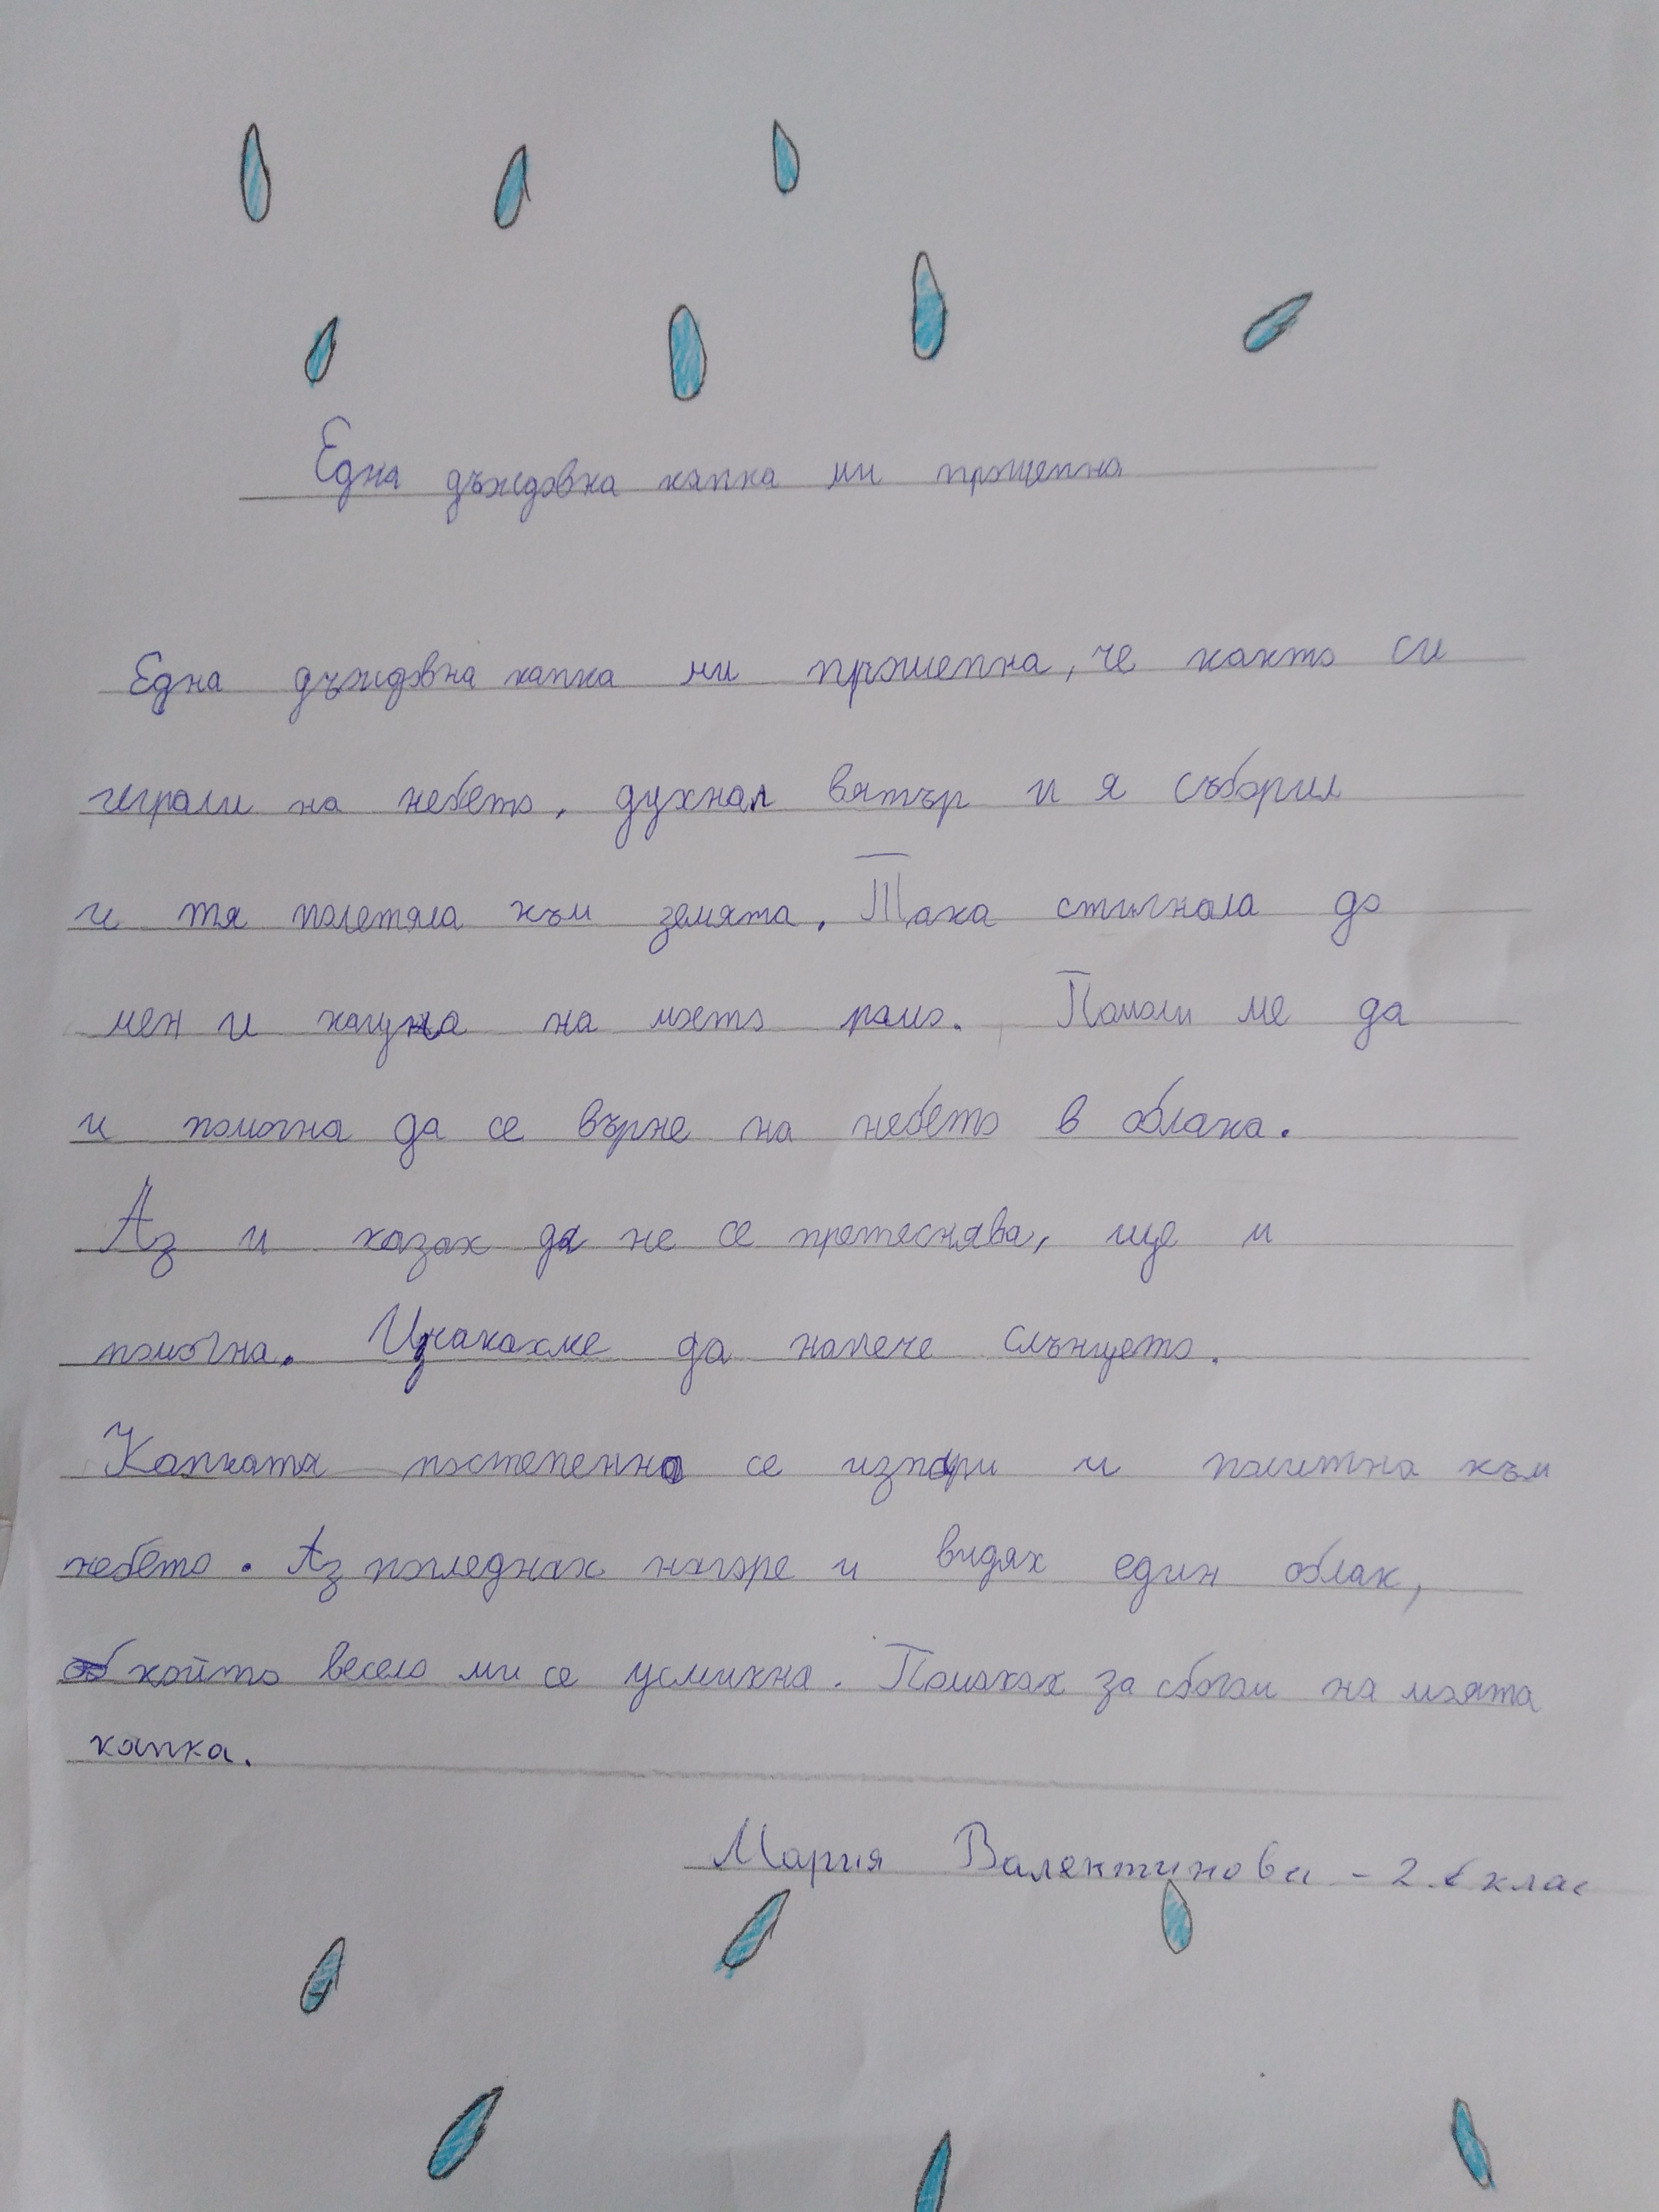 Една дъждовна капка ми прошепна
Една дъждовна капка ми прошепна, че както си
играли на небето, духнал вятър и я съборил
и тя полетяла към земята. Така стигнала до
мен и кацна на моето рамо. Помоли ме да
и помогна да се върне на небето в облака.
Аз и казах да не се претеснява, ще и
помогна. Изчакахме да напече слънцето.
Капката постепенно се изпари и политна към
небето. Аз погледнах нагоре и видях един облак,
който весело ми се усмихна. Помахах за сбогом на моята
капка.
Мария Валентинова - 2. клас